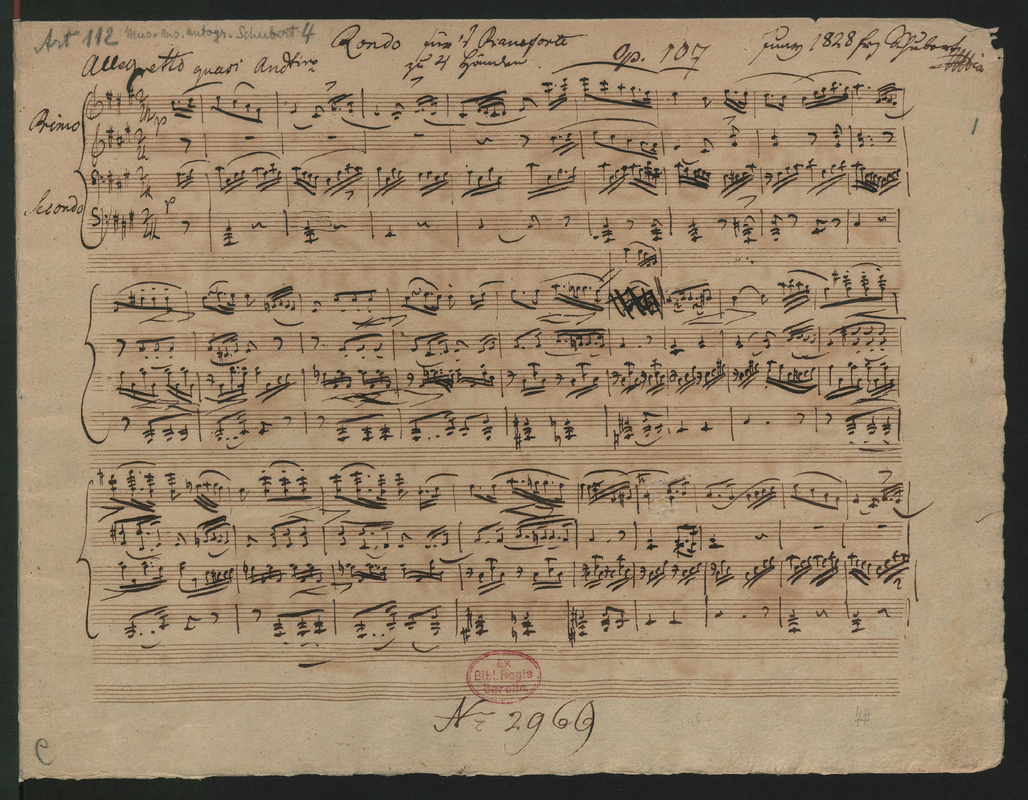 Art 112 Mus. ms. autogr. Schubert 4
Rondo für's Pianoforte
zu 4 Händen
Op. 107
Juny 1828 frz Schubert
Allegretto quasi
Primo
p
Secondo
p
1
Ex
Bibl. Regia
Berolin.
No 2969